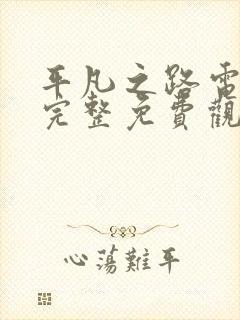 平凡之路電
完整免費觀
心蕩難平